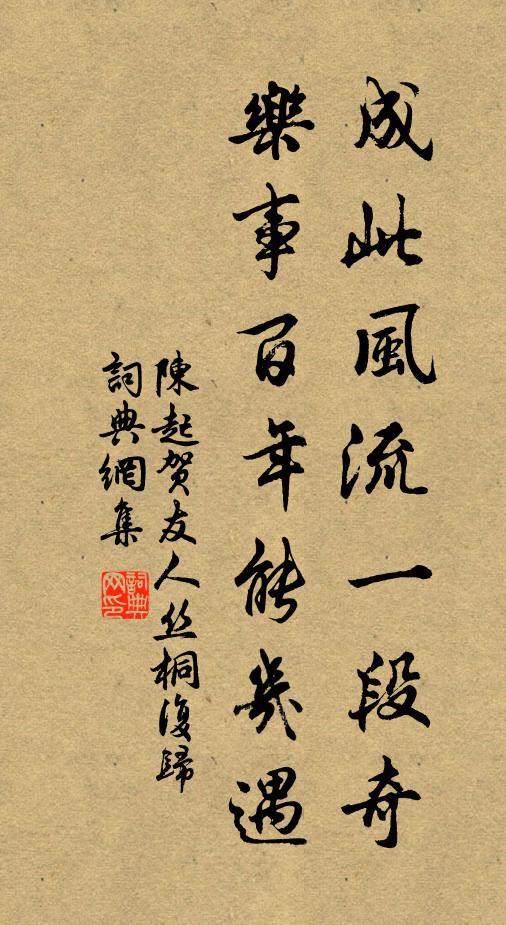 成此風流一段奇
樂事百年能幾遇
陳起賀友人丝桐復歸
詞典網集
詞典网印